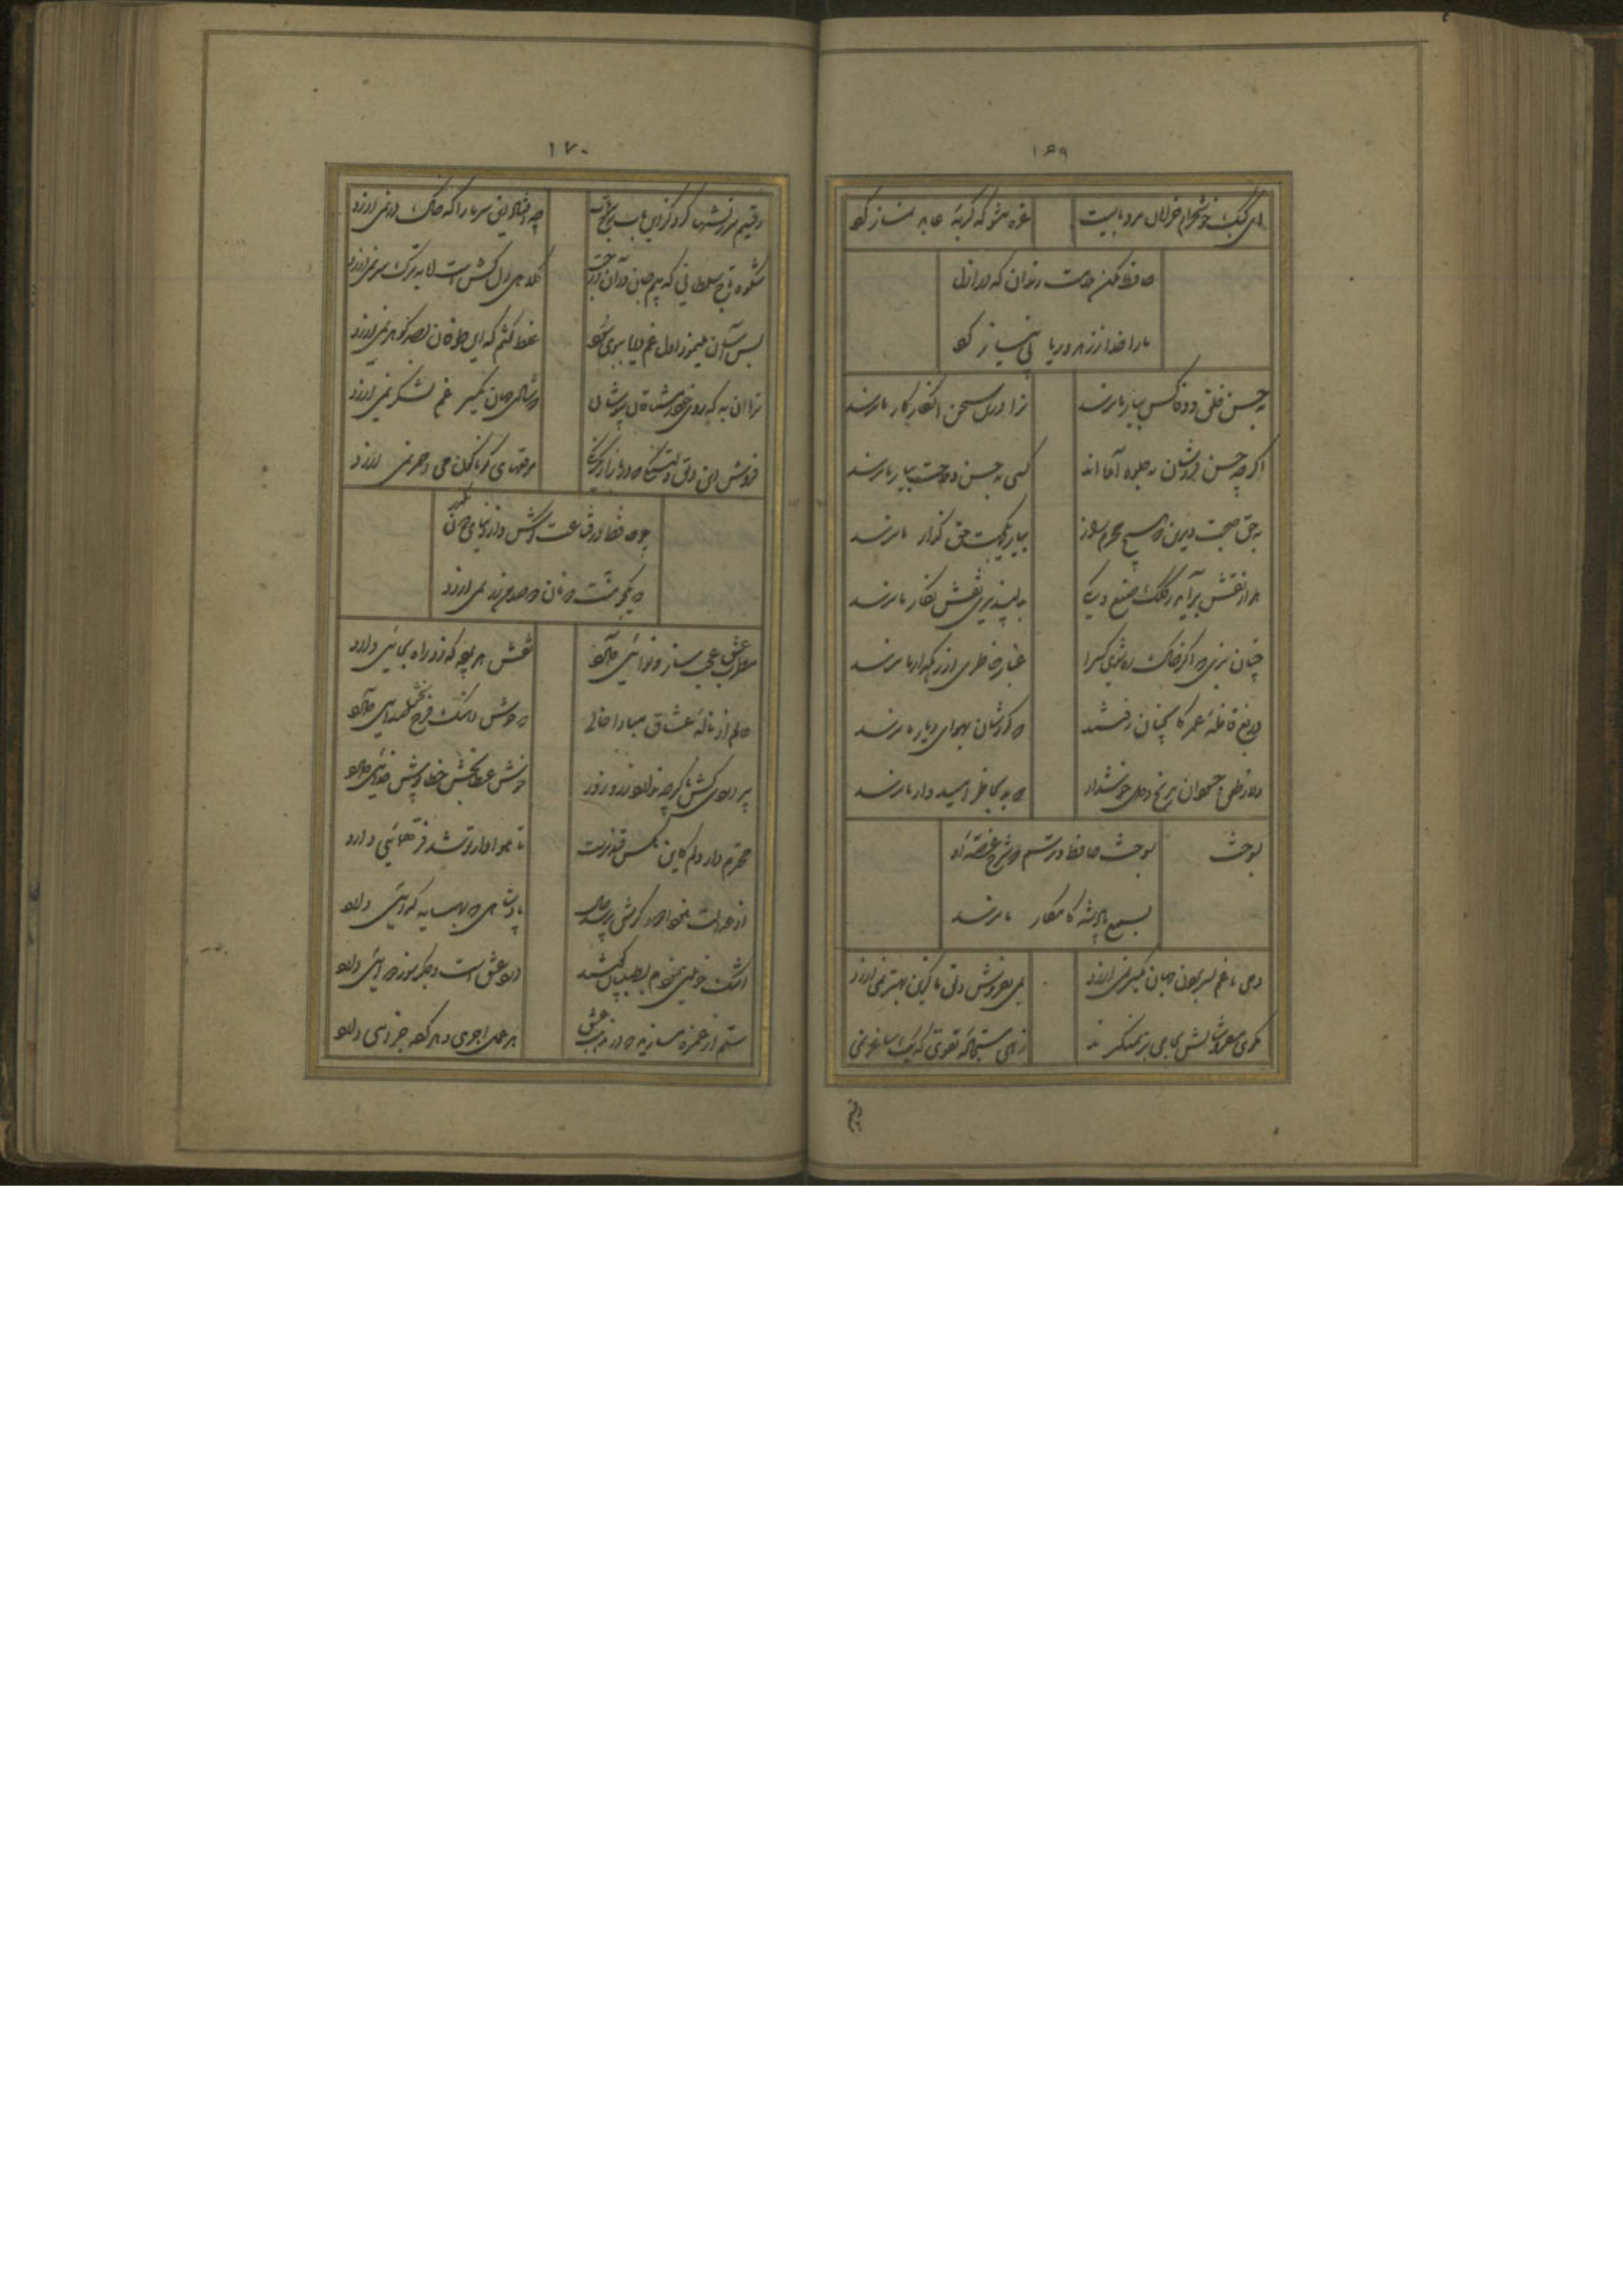 ۱۶۹
ای کبک خوشخرام خرامان مرو بایست غره مشو که گربهٔ عابد نماز کرد
حافظ مکن ملامت رندان که در ازل
ما را خدا ز زهد و ریا بی نیاز کرد
به حسن خلق و وفا کس بیار ما نرسد ترا درین سخن انکار کار ما نرسد
اگرچه حسن فروشان به جلوه آمده‌اند کسی به حسن و ملاحت بیار ما نرسد
به حق صحبت دیرین که هیچ محرم راز بیار یکجهت حق گذار ما نرسد
هزار نقش برآید ز کلک صنع و یکی به دلپذیری نقش نگار ما نرسد
چنان بزی که اگر خاک ره شوی کس را غبار خاطری از رهگذار ما نرسد
دریغ قافلهٔ عمر کانچنان رفتند که گردشان بهوای دیار ما نرسد
دلا ز طعن حسودان مرنج و دل خوش دار که بد بخاطر امیدوار ما نرسد
بسوخت بسوخت حافظ و ترسم که شرح غصهٔ او
بسمع پادشه کامکار ما نرسد
دمی با غم بسر بردن جهان یکسر نمی ارزد بمی بفروش دلق ما کزین بهتر نمی ارزد
بکوی میفروشانش بجامی بر نمیگیرند زهی سجادهٔ تقوی که یک ساغر نمی
رقیم
۱۷۰
رقیبم سرزنشها کرد کز این باب رخ برتاب چه افتاد این سر ما را که خاک در نمی ارزد
شکوه تاج سلطانی که بیم جان در آن درجست کلاهی دلکش است اما به ترک سر نمی ارزد
بس آسان مینمود اول غم دریا ببوی سود غلط گفتم که این طوفان بصد گوهر نمی ارزد
ترا آن به که روی خود ز مشتاقان بپوشانی که شادی جهان گیری غم لشکر نمی ارزد
چو حافظ در قناعت کوش و از دنیای دون بگذر
که یکجو منت دونان دو صد من زر نمی ارزد
مطرب عشق عجب ساز و نوائی دارد نقش هر نغمه که زد راه بجائی دارد
عالم از نالهٔ عشاق مبادا خالی که خوش آهنگ و فرح بخش صدائی دارد
پیر دردی کش ما گرچه ندارد زر و زور خوش عطا بخش و خطا پوش خدائی دارد
محترم دار دلم کاین مگس قند پرست تا هوادار تو شد فر همائی دارد
از عدالت نبود دور گرش پرسد حال پادشاهی که به همسایه گدائی دارد
اشک خونین بنمودم بطبیبان گفتند درد عشق است و جگر سوز دوائی دارد
ستم از غمزه میاموز که در مذهب عشق هر عمل اجری و هر کرده جزائی دارد